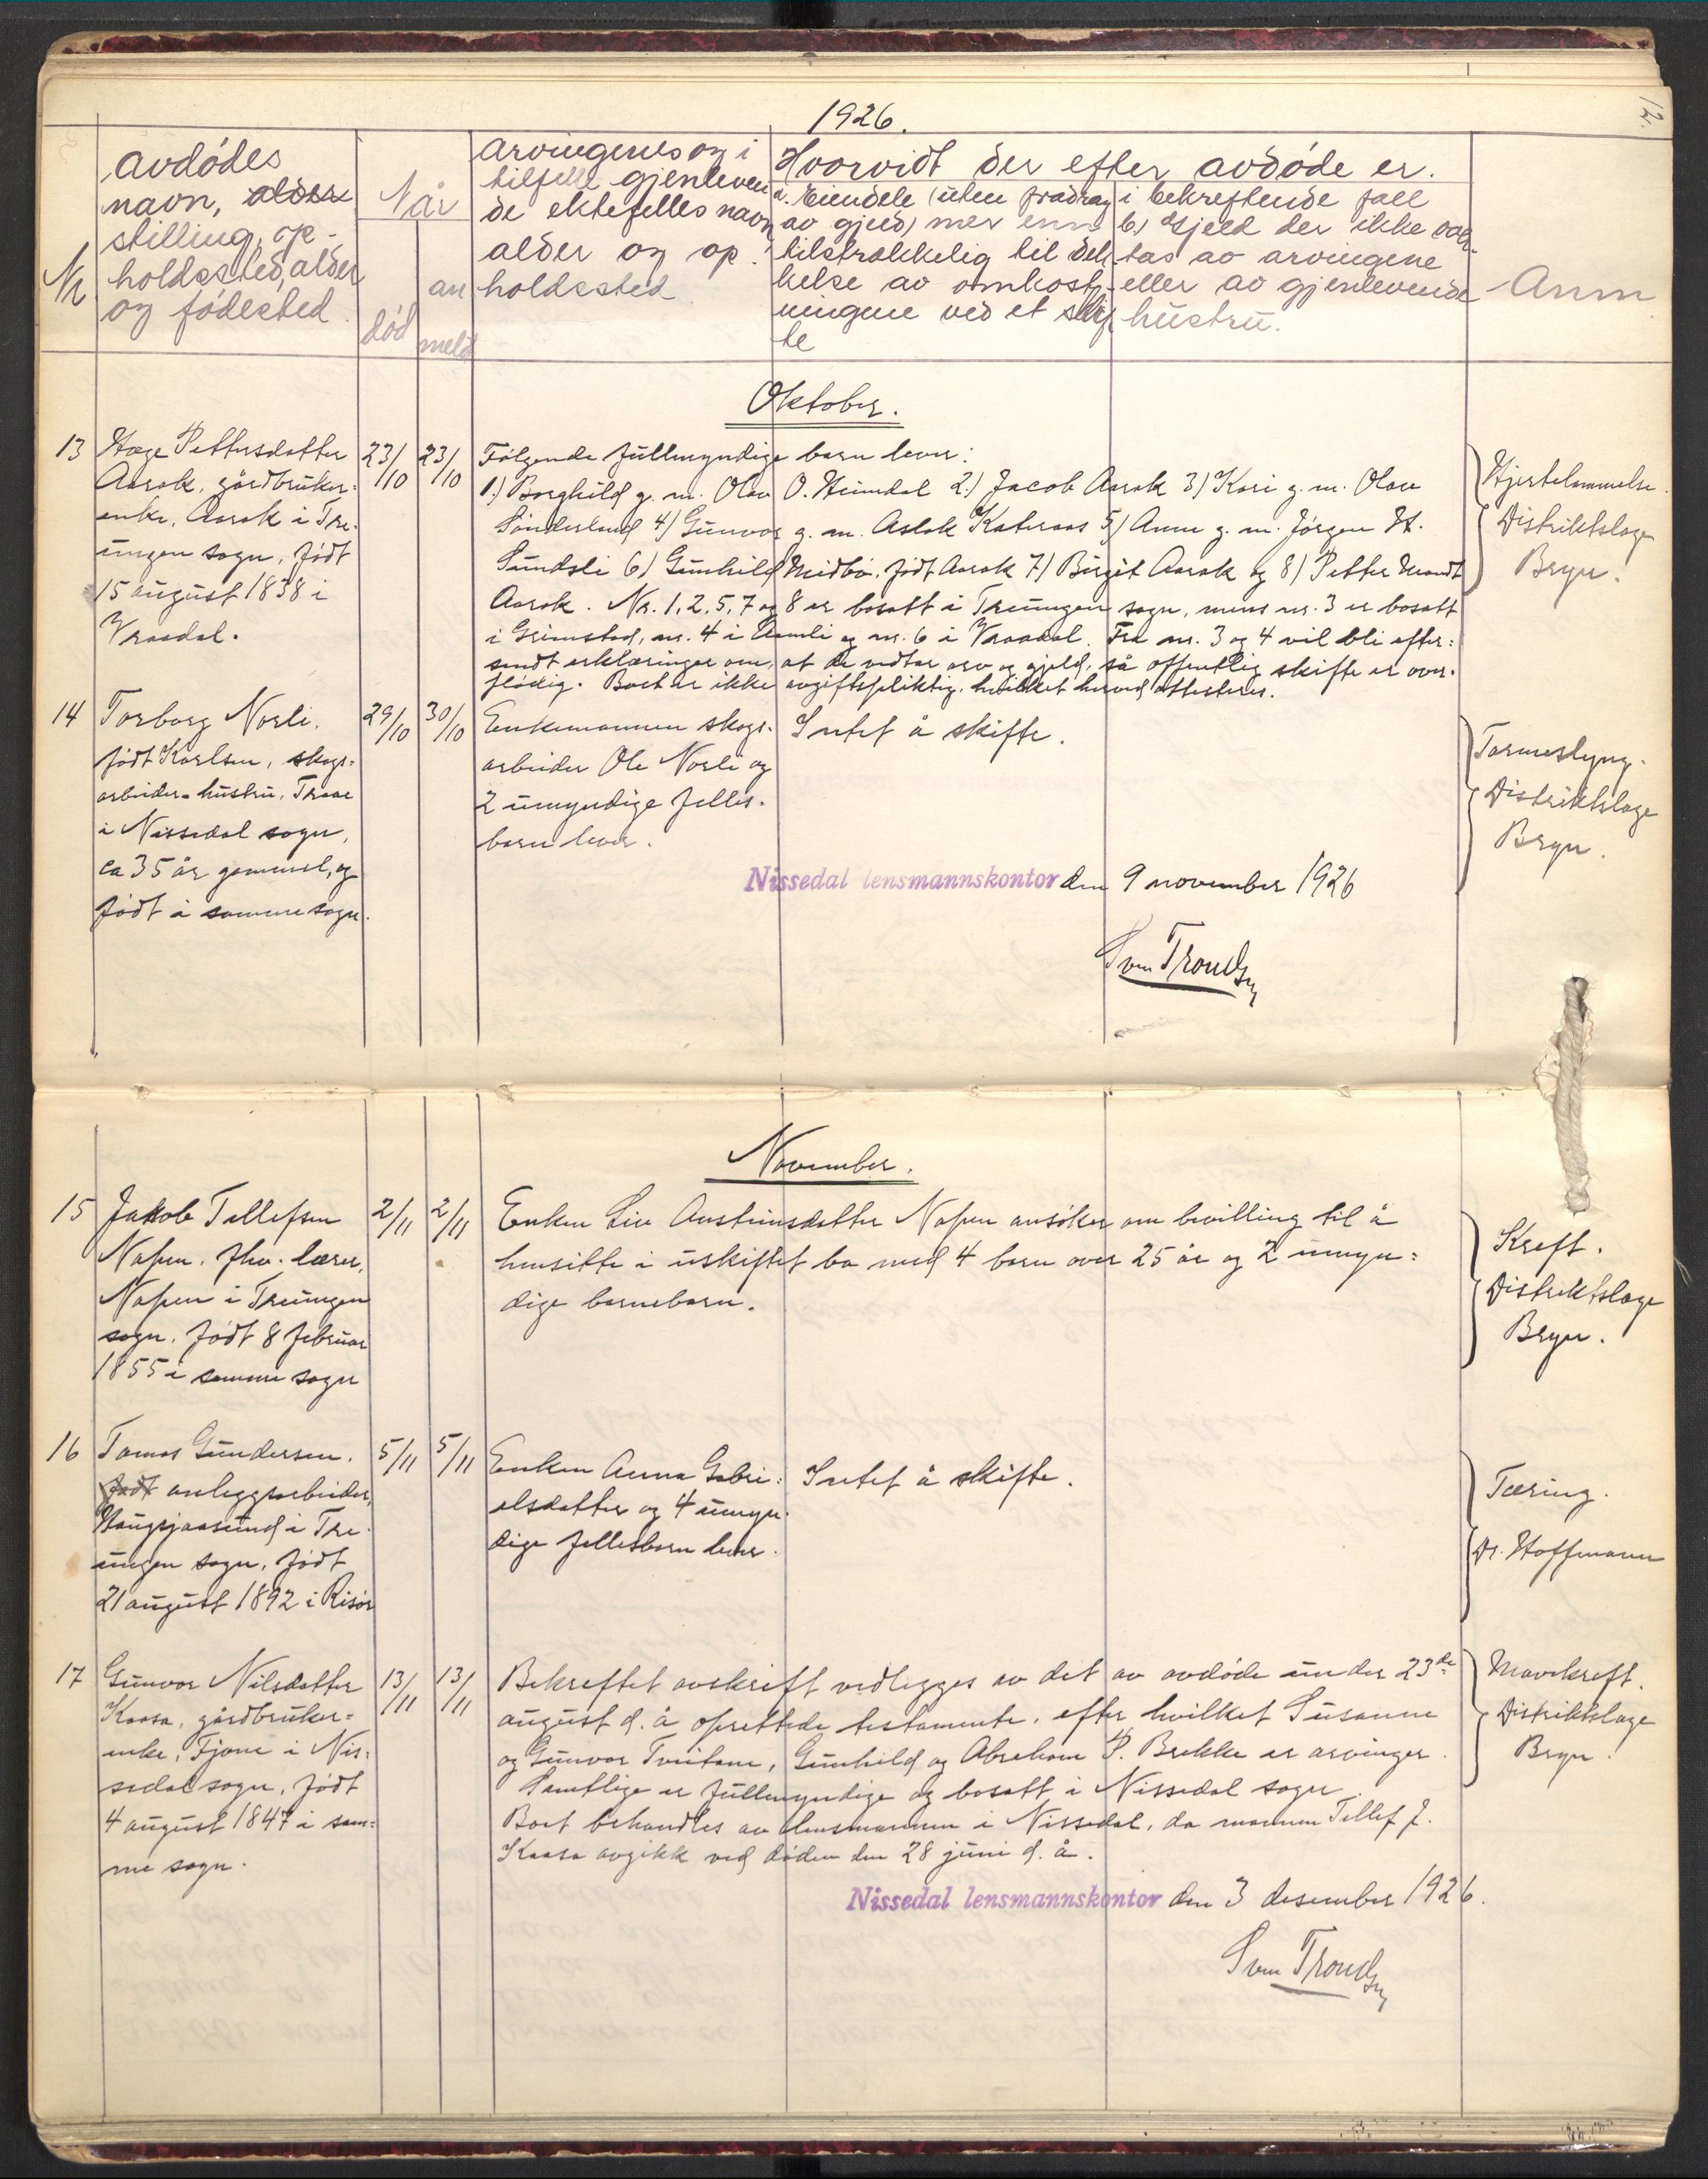 1926.
12.
Nr.
avdødes
navn, alder
stilling, op-
holdssted, alder
og fødested.
Når
død
an
meld
arvingenes og i
tilfelle gjenleven
de ektefelles navn
alder og op-
holdssted
Hvorvidt der efter avdøde er.
a. Eiendele (uten fradrag
av gjeld) mer enn
tilstrekkelig til dek-
kelse av omkost-
ningene ved et skif-
te
i bekreftende fall
b) Gjeld der ikke ved-
tas av arvingene
eller av gjenlevende
hustru.
Anm
Oktober.
13
Hæge Pettersdatter
Aarak, gårdbruker-
enke, Aarak i Tre-
ungen sogn, født
15 august 1838 i
Vraadal.
23/10
23/10
Følgende fullmyndige barn lever:
1.) Borghild g. m. Olav O. Heimdal 2.) Jacob Aarak 3) Kari g. m. Olav
Sønderland 4) Gunvor g. m. Aslak Kateraas 5) Anne g. m. Jørgen H.
Sundsli 6) Gunhild Midbø, født Aarak 7) Birgit Aarak og 8) Petter Mandt
Aarak. Nr. 1, 2, 5, 7 og 8 er bosatt i Treungen sogn, mens nr. 3 er bosatt
i Grimstad, nr. 4 i Aamli og nr. 6 i Vraadal. Fra nr. 3 og 4 vil bli efter-
sendt erklæringer om, at de vedtar arv og gjeld, så offentlig skifte er over-
flødig. Boet er ikke avgiftspliktig, hvilket herved attesteres.
Hjertelammelse.
Distriktslæge
Bryn.
14
Torborg Norli.
født Karlsen, skogs-
arbeider-hustru, Traae
i Nissedal sogn,
ca 35 år gammel, og
født i samme sogn.
29/10
30/10
Enkemannen skogs-
arbeider Ole Norli og
2 umyndige felles-
barn lever.
Intet å skifte.
Tarmeslyng.
Distriktslæge
Bryn.
Nissedal lensmannskontor den 9 november 1926
Sven Trondsen
November.
15
Jakob Tellefsen
Napen. fhv. lærer,
Napen i Treungen
sogn. født 8 februar
1855 i samme sogn
2/11
2/11
Enken Liv Austeinsdatter Napen ansøker om bevilling til å
hensitte i uskiftet bo med 4 barn over 25 år og 2 umyn-
dige barnebarn.
Kreft.
Distriktslæge
Bryn.
16
Tomas Gundersen.
født anleggsarbeider,
Haugsjaasund i Tre-
ungen sogn, født
21 august 1892 i Risør
5/11
5/11
Enken Anna Gabri-
elsdatter og 4 umyn-
dige fellesbarn lever.
Intet å skifte.
Tæring.
Dr. Hoffmann
17
Gunvor Nilsdatter
Kaasa, gårdbruker-
enke, Fjone i Nis-
sedal sogn, født
4 august 1847 i sam-
me sogn.
13/11
13/11
Bekreftet avskrift vedlegges av det av avdøde under 23de
august d. å oprettede testamente, efter hvilket Susanne
og Gunvor Tveitane, Gunhild og Abraham P. Brekke er arvinger.
Samtlige er fullmyndige og bosatt i Nissedal sogn.
Boet behandles av lensmannen i Nissedal, da mannen Tellef J.
Kaasa avgikk ved døden den 28 juni d. å.
Mavekreft.
Distriktslæge
Bryn.
Nissedal lensmannskontor den 3 desember 1926.
Sven Trondsen